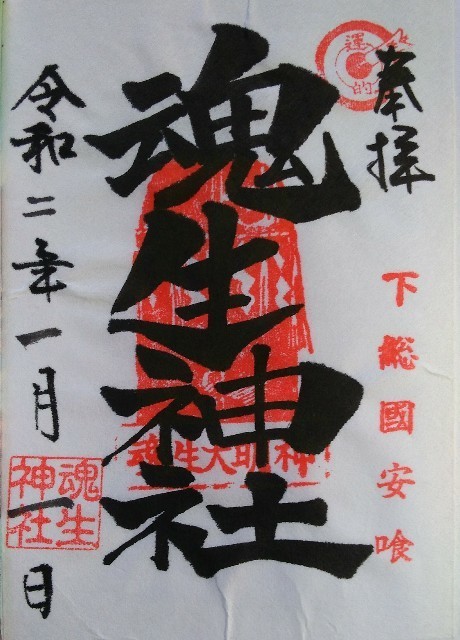 奉拝
運
的
下総國安喰
魂生神社
魂生大明神
魂生
神社
令和二年一月一日